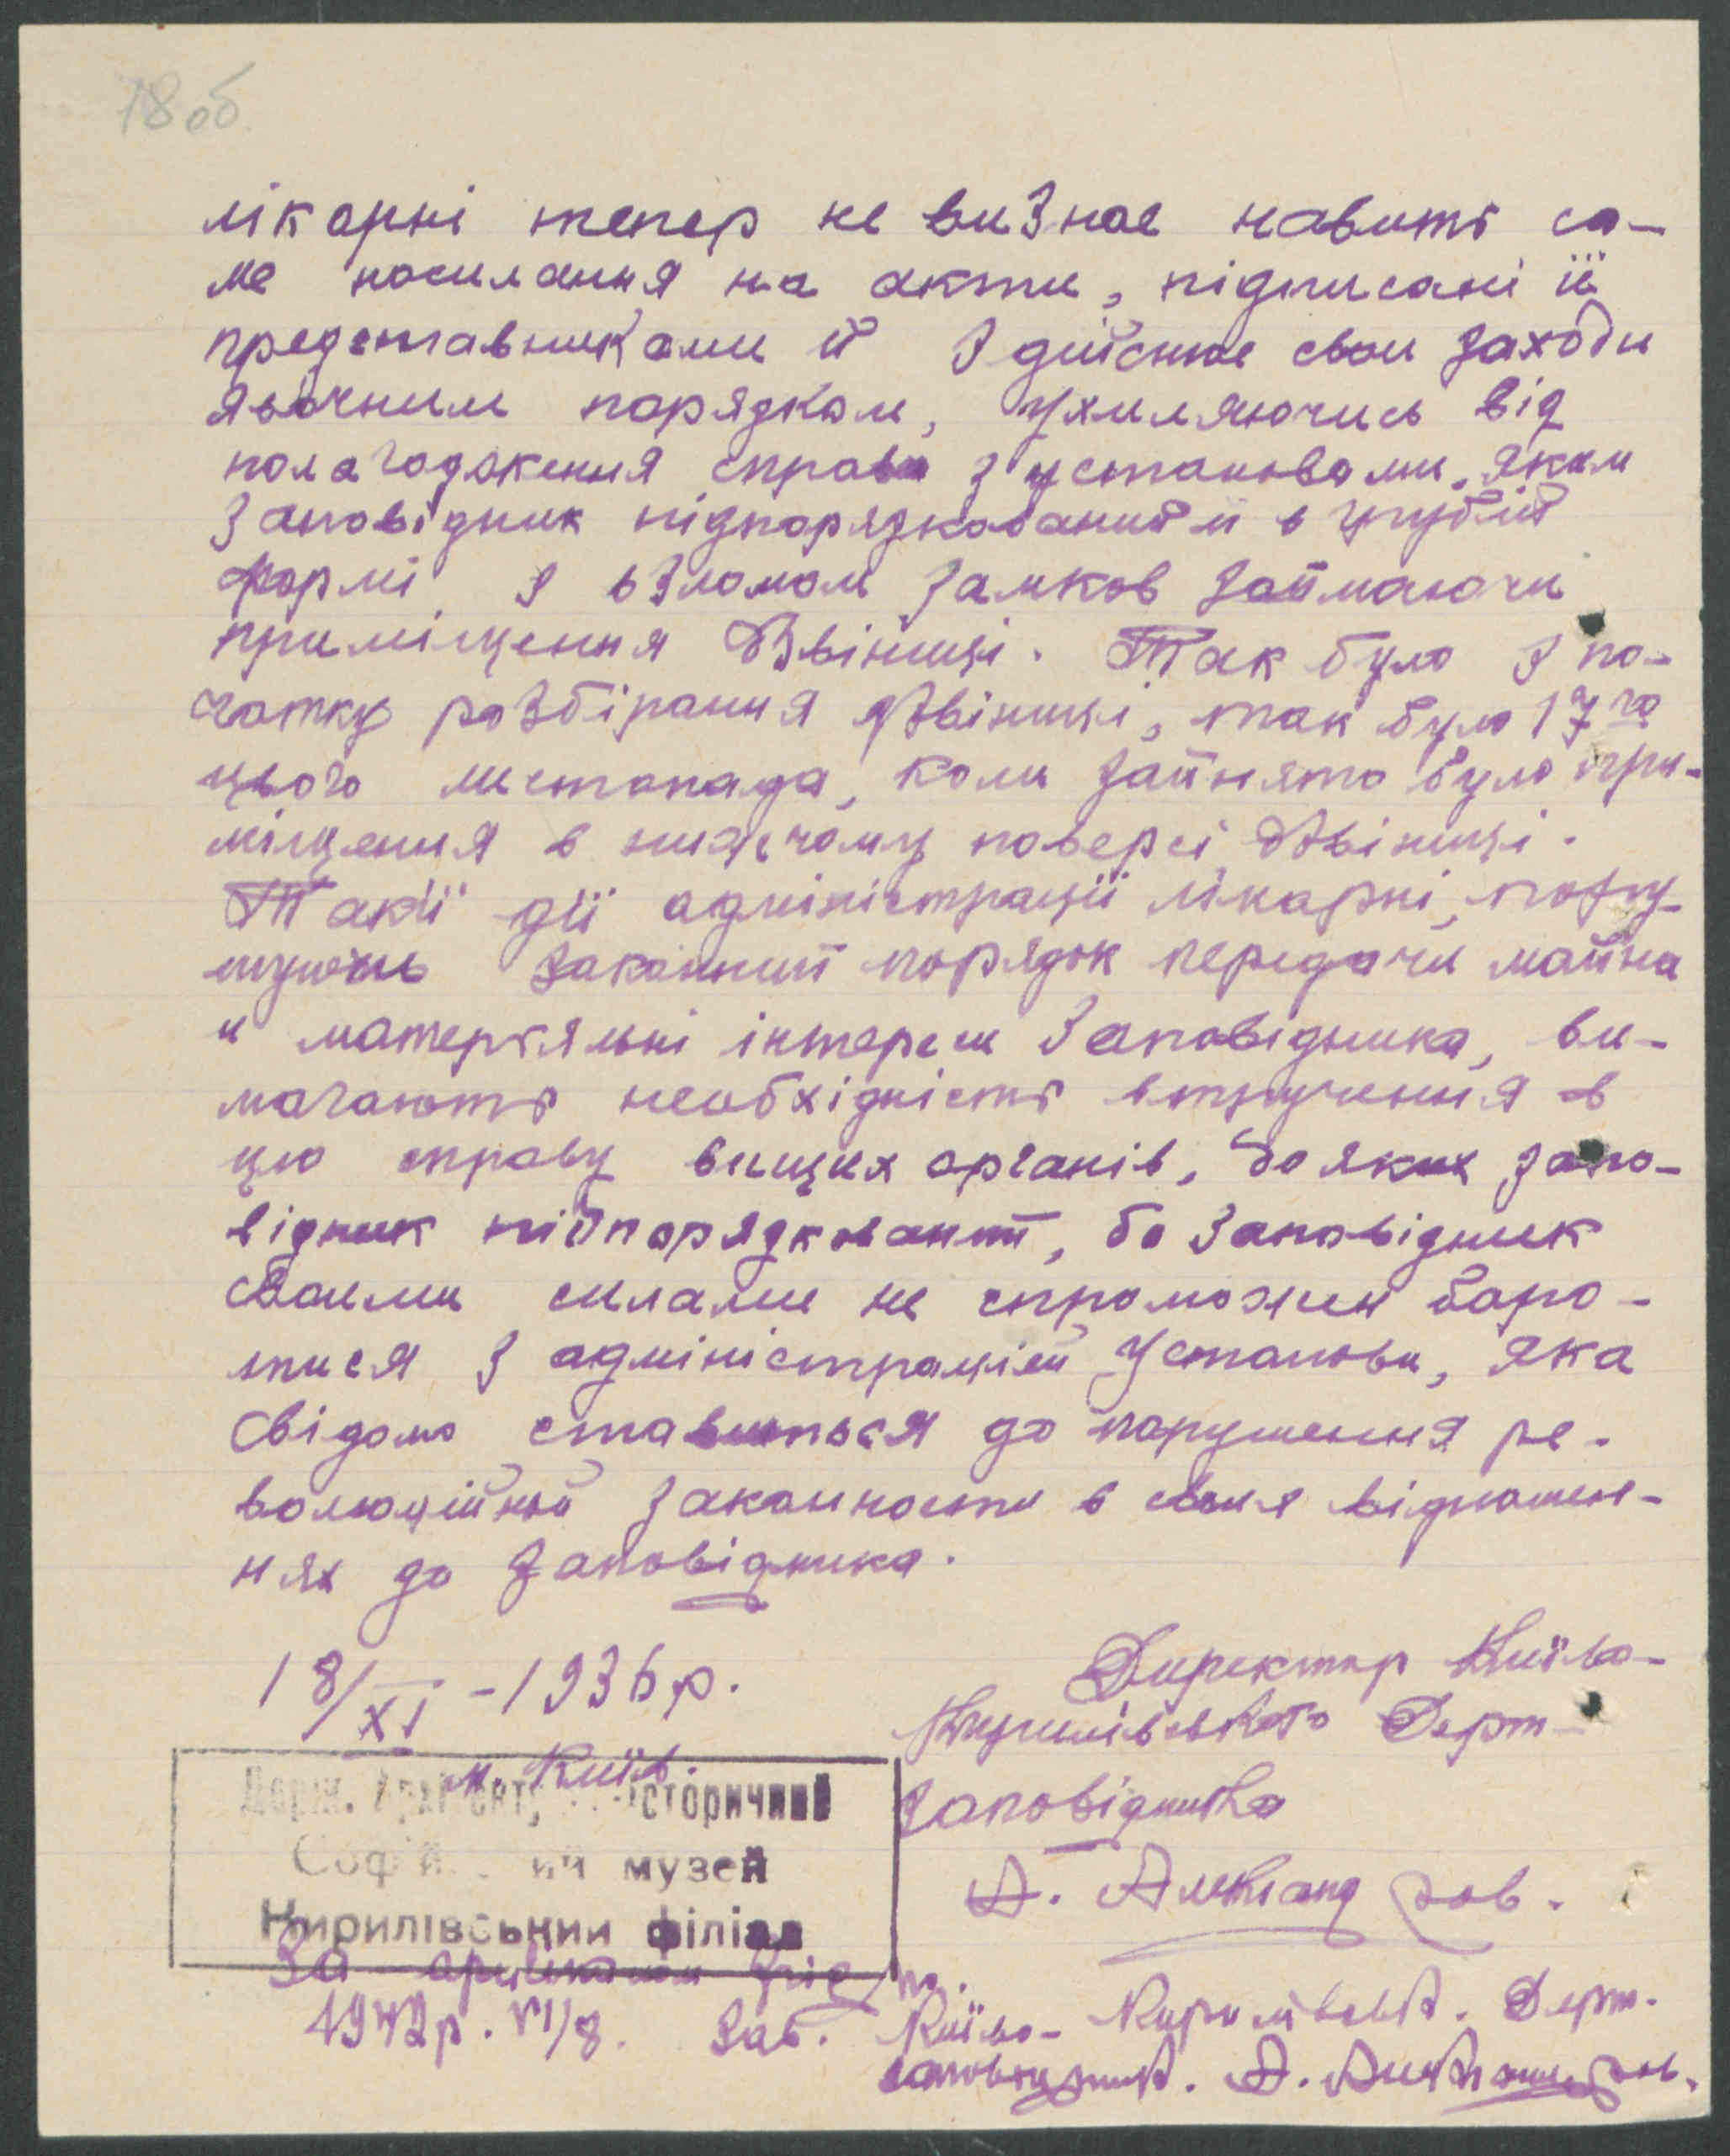 78 об
лікарні тепер не визнає навить са-
ме посилання на акти, підписані її
представниками й здійсняе свои заходи
явочним порядком, ухиляючись від
полагодження справи з установами, яким
Заповідник підпорядкований и в грубій
формі, з взломом замков займаючи
приміщення Дзвіниці. Так було з по-
чатку розбірання Дзвіниці, так було 17го
цього листопада, коли зайнято було при-
міщення в нижчому поверсі Дзвіниці.
Такії дії адміністрації лікарні, пору-
шуючь законний порядок передачи майна
и матеріяльні інтереси Заповідника, ви-
магають необхідність втручення в
цю справу вищих органів, до яких запо-
відник підпорядкований, бо Заповідник
своими силами не спроможен боро-
тися з адміністрацієй Установи, яка
свідомо ставиться до порушення ре-
волюційной законности в своїх відношен-
нях до Заповідника.
18/XI -1936 р.
м. Київ.
Директор Київо-
Кирилівського Держ-
заповідника
А. Александров.
Держ. Архітект, історичний
Софійський музей
Кирилівський філіал
За
1942 р. VI/8. Зав. Київо- Кирилівськ. Держ.
заповідник. А. Александров.